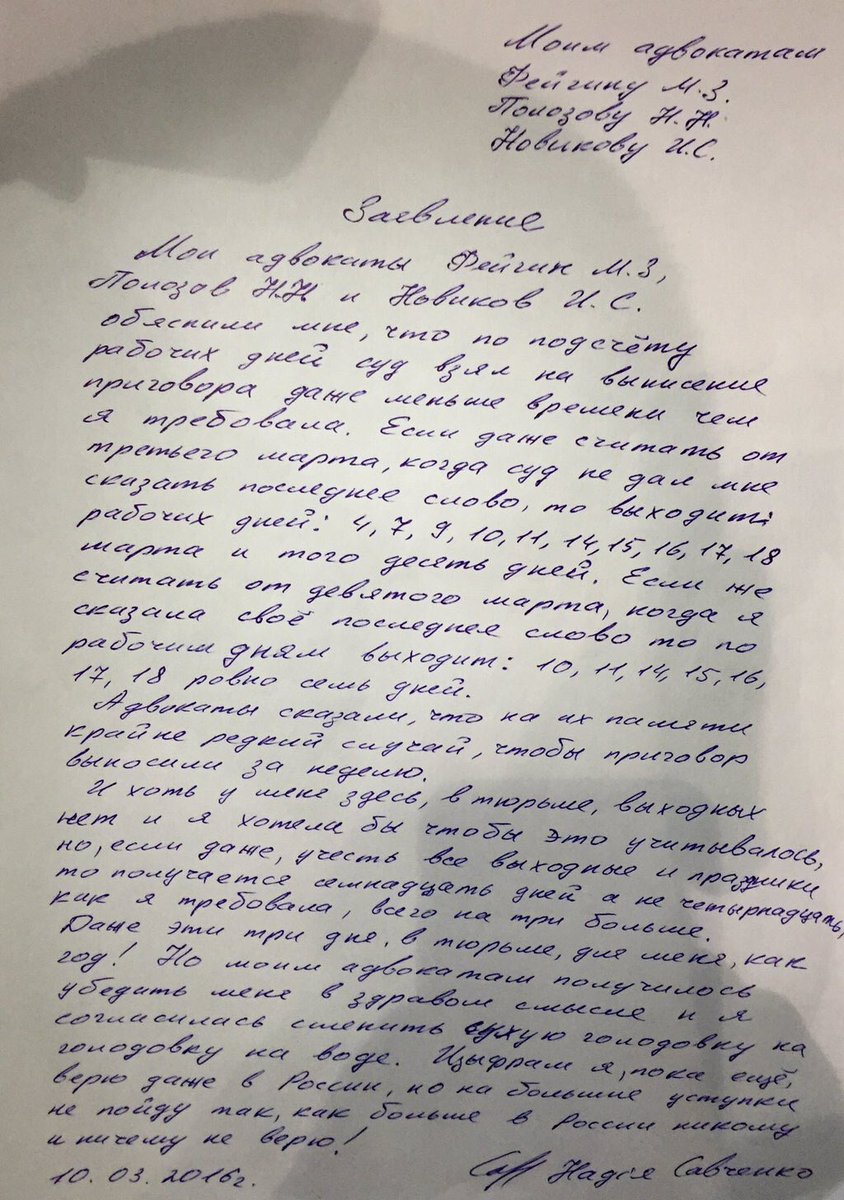 Моим адвокатам
Фейгину М.З.
Полозову Н.Н.
Новикову И.С.
Заявление
Мои адвокаты Фейгин М.З,
Полозов Н.Н и Новиков И.С.
обяснили мне, что по подсчёту
рабочих дней суд взял на вынисение
приговора даже меньше времени чем
я требовала. Если даже считать от
третьего марта, когда суд не дал мне
сказать последнее слово, то выходит:
рабочих дней: 4, 7, 9, 10, 11, 14, 15, 16, 17, 18
марта и того десять дней. Если же
считать от девятого марта, когда я
сказала своё последнее слово то по
рабочим дням выходит: 10, 11, 14, 15, 16,
17, 18 ровно семь дней.
Адвокаты сказали, что на их памяти
крайне редкий случай, чтобы приговор
выносили за неделю.
И хоть у меня здесь, в тюрьме, выходных
нет и я хотела бы чтобы это учитывалось,
но, если даже, учесть все выходные и праздники
то получается семнадцать дней а не четырнадцать,
как я требовала, всего на три больше.
Даже эти три дня, в тюрьме, для меня, как
год! Но моим адвокатам получилось
убедить меня в здравом смысле и я
согласилась сменить сухую голодовку на
голодовку на воде. Цыфрам я, пока ещё,
верю даже в России, но на большие уступки
не пойду так, как больше в России никому
и ничему не верю!
10.03.2016г. Надія Савченко